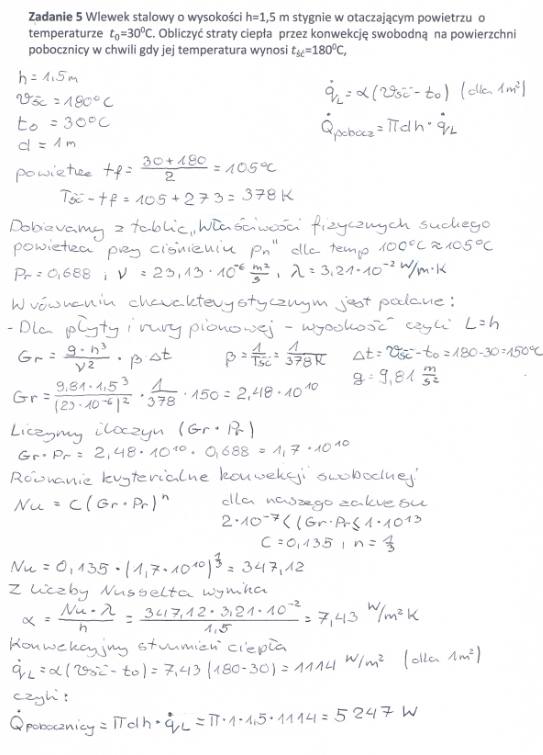 Zadanie 5 Wlewek stalowy o wysokości h=1,5 m stygnie w otaczającym powietrzu o
temperaturze t₀=30⁰C. Obliczyć straty ciepła przez konwekcję swobodną na powierzchni
pobocznicy w chwili gdy jej temperatura wynosi tśc=180⁰C,
h = 1,5 m
ϑśc = 180°C
t₀ = 30°C
d = 1 m
q̇L = α(ϑśc - t₀) (dla 1m²)
Q̇pobocz = πdh · q̇L
powietrze tf = (30+180)/2 = 105°C
Tśc - tf = 105 + 273 = 378 K
Dobieramy z tablic „Właściwości fizycznych suchego
powietrza przy ciśnieniu pn" dla temp 100°C ≈ 105°C
Pr = 0,688 , ν = 23,13 · 10⁻⁶ m²/s , λ = 3,21 · 10⁻² W/m·K
W równaniu charakterystycznym jest podane:
- Dla płyty i rury pionowej - wysokość czyli L=h
Gr = (g · h³)/ν² · β · Δt β = 1/Tśc = 1/378K Δt = ϑśc - t₀ = 180 - 30 = 150°C
g = 9,81 m/s²
Gr = (9,81 · 1,5³)/(23 · 10⁻⁶)² · 1/378 · 150 = 2,48 · 10¹⁰
Liczymy iloczyn (Gr · Pr)
Gr · Pr = 2,48 · 10¹⁰ · 0,688 = 1,7 · 10¹⁰
Równanie kryterialne konwekcji swobodnej
Nu = C (Gr · Pr)ⁿ dla naszego zakresu
2 · 10⁻⁷ < (Gr · Pr ≤ 1 · 10¹³
C = 0,135 , n = 1/3
Nu = 0,135 · (1,7 · 10¹⁰)^1/3 = 347,12
Z liczby Nusselta wynika
α = (Nu · λ)/h = (347,12 · 3,21 · 10⁻²)/1,5 = 7,43 W/m²K
Konwekcyjny strumień ciepła
q̇L = α(ϑśc - t₀) = 7,43 (180 - 30) = 1114 W/m² (dla 1m²)
czyli:
Q̇pobocznicy = πdh · q̇L = π · 1 · 1,5 · 1114 = 5247 W